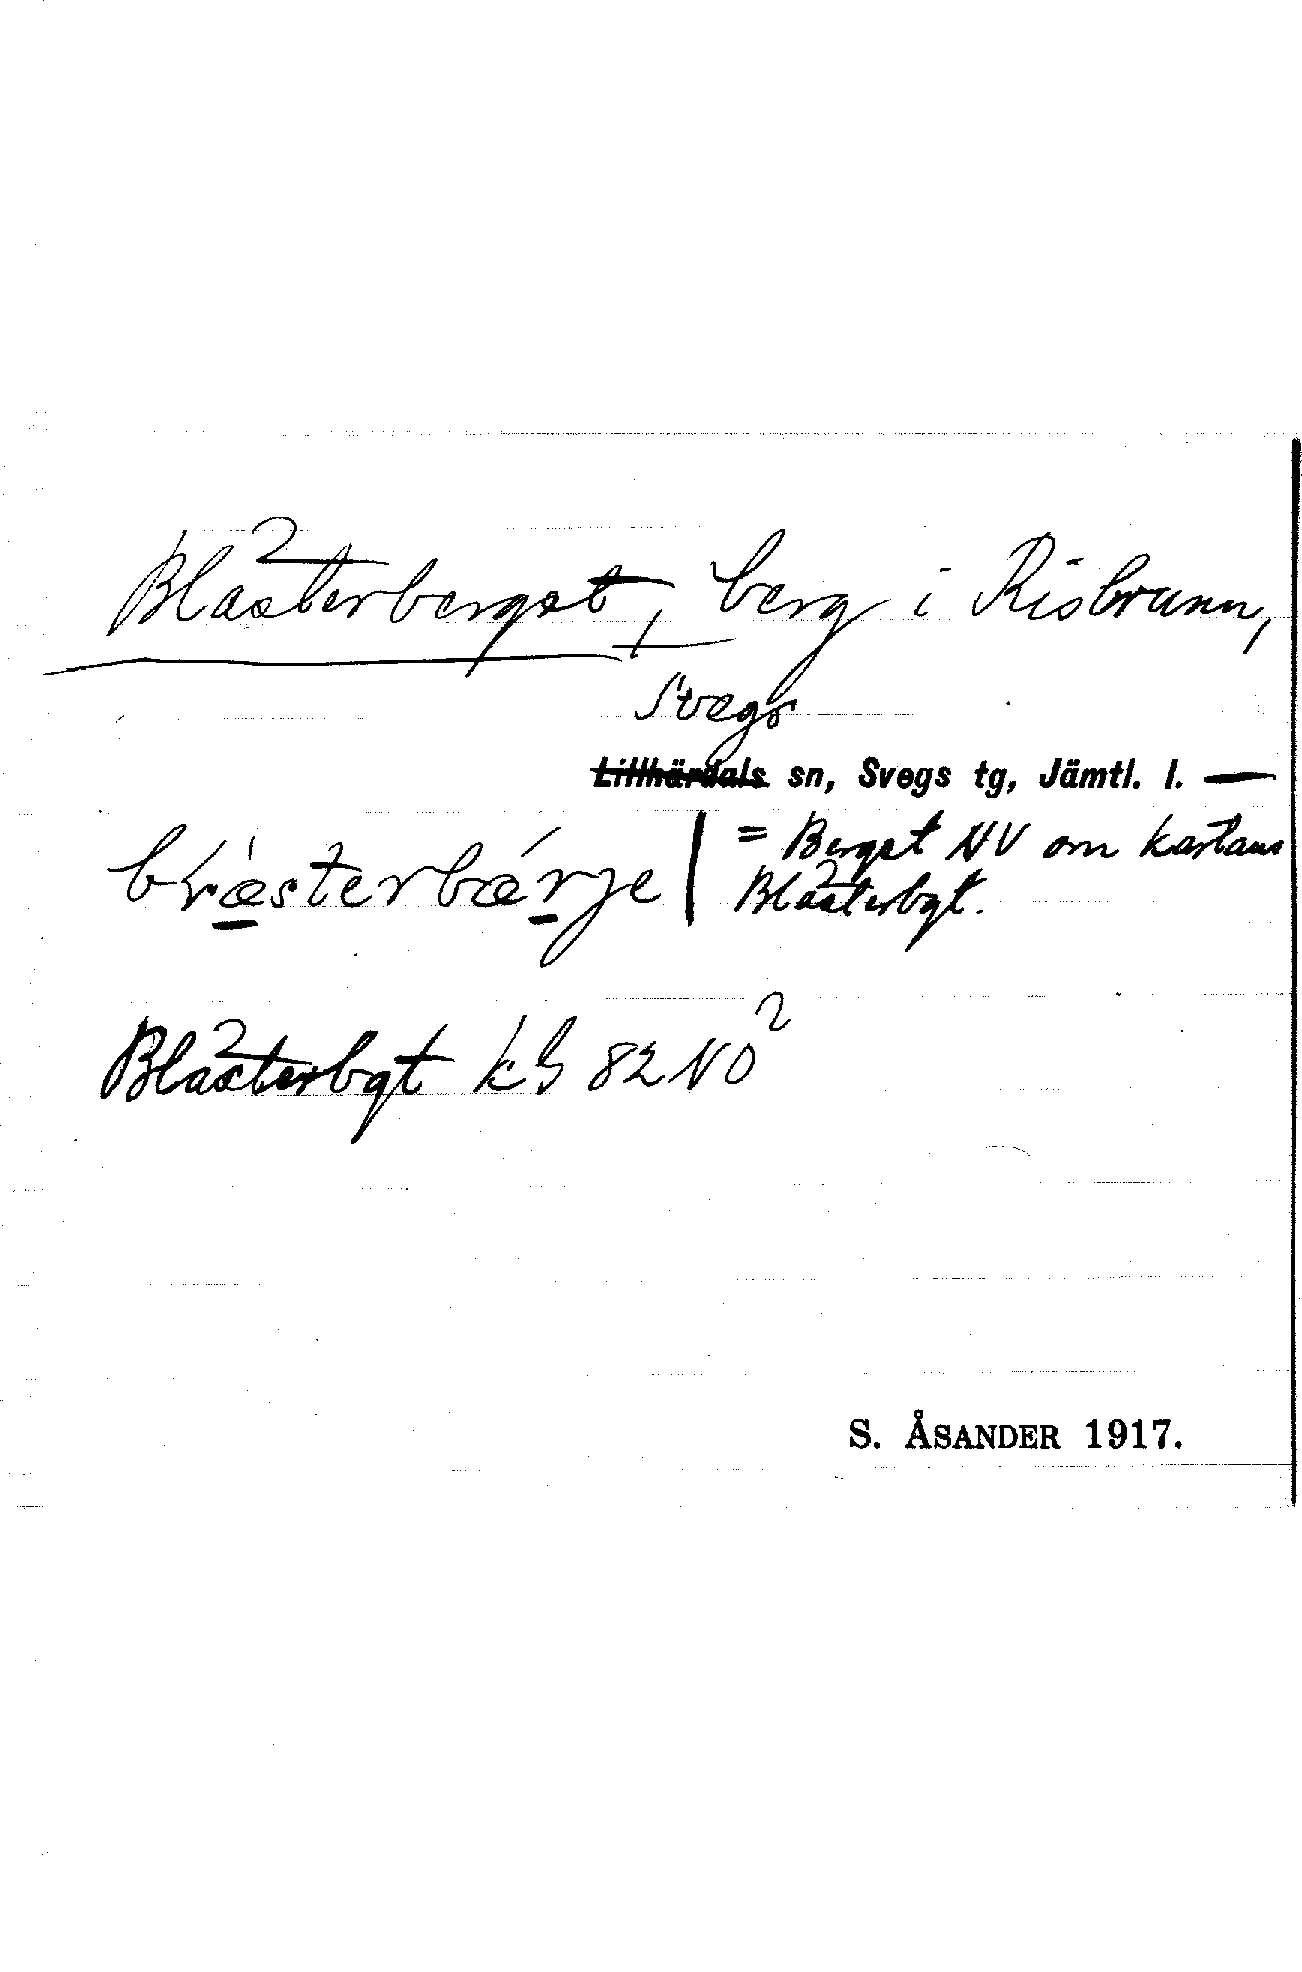 Blästerberget, berg i Risbrunn,
Svegs
Lillhärdals sn, Svegs tg, Jämtl. l. —
= Berget NV om kartans
Blästerbgt.
Blästerbgt kG 82 NO²
S. ÅSANDER 1917.